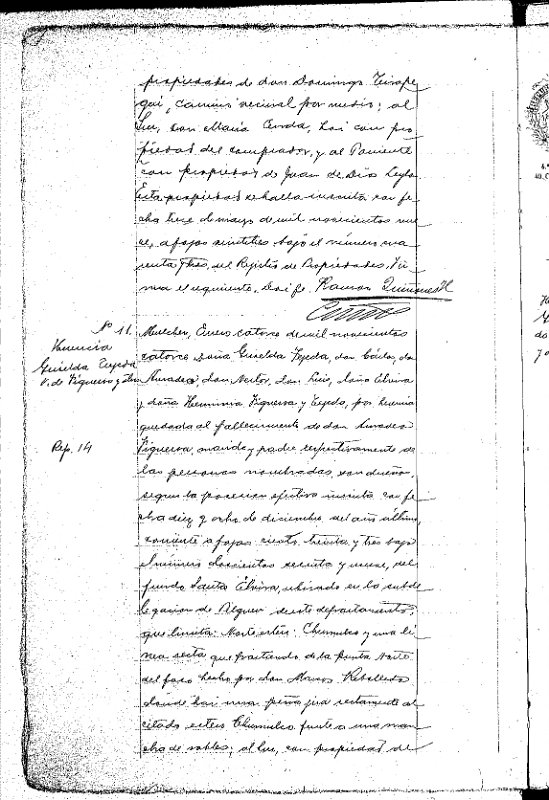 propiedades de don Domingo Tirape
gui, camino vecinal por medio; al
Sur, con María Cerda, hoi con pro
piedad del comprador, y al Poniente
con propiedad de Juan de Dios
Esta propiedad se halla inscrita con fe
cha trece de mayo de mil novecientos nue
ve, a fojas veintitres bajo el número cua
renta y tres, del Rejistro de Propiedades. Fir
ma el requirente. Doi fe. Ramon Quiñones
No 11.
Herencia
Griselda Tejeda
v. de Figueroa y otros
Rep. 14
Mulchen, Enero catorce de mil novecientos
catorce. Doña Griselda Tejeda, don Cárlos, don
Amadeo, don Nestor, don Luis, doña Elvira
y doña Herminia Figueroa y Tejeda, por herencia
quedada al fallecimiento de don Amadeo
Figueroa, marido y padre respectivamente de
las personas nombradas, son dueños,
segun la posesion efectiva inscrita con fe
cha diez y ocho de diciembre del año último,
corriente a fojas ciento treinta y tres bajo
el número doscientos sesenta y nueve, del
fundo Santa Elvira, ubicado en la subde
legacion de Pilguen de este departamento,
que limita: Norte estero Chumulco y una li
nea recta que partiendo de la punta Norte
del foso hecho por don Marcos Rebolledo
donde hai una peña jira rectamente al
citado estero Chumulco frente a una man
cha de robles; al Sur, con propiedad de